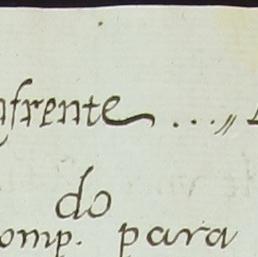 nfrente ...,,
do
omp. para